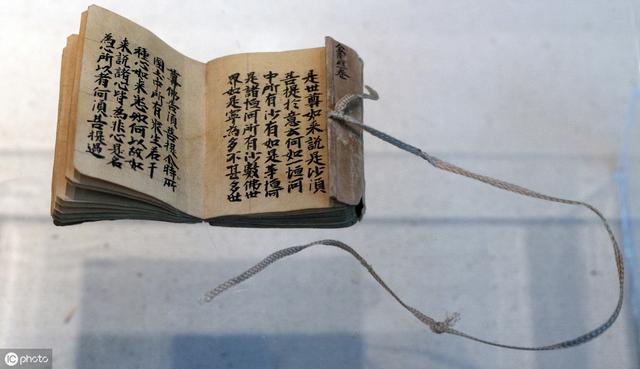 金剛經卷
是世尊如来說是沙須
菩提扵意云何如一恒河
中所有沙有如是等恒河
是諸恒河所有沙數佛世
界如是寧為多不甚多世
尊佛告須菩提尒時所
國土中所有衆生若干
種心如来悉知何以故如
来說諸心皆為非心是名
為心所以者何須菩提過
iC photo